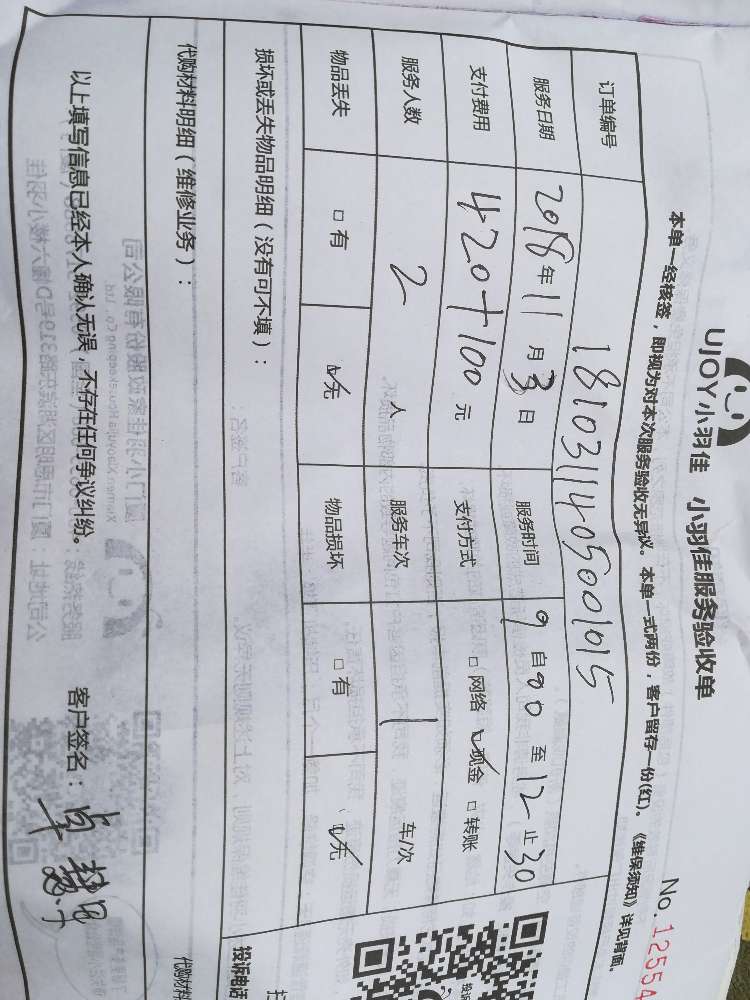 UJOY小羽佳 小羽佳服务验收单
No.12554
本单一经核签，即视为对本次服务验收无异议。本单一式两份，客户留存一份(红)。《维保须知》详见背面。
订单编号 1810311405001015
服务日期 2018年11月3日 服务时间 9自00至12止30
支付费用 420+100元 支付方式 □网络 ☑现金 □转账
服务人数 2人 服务车次 1车/次
物品丢失 □有 ☑无 物品损坏 □有 ☑无
损坏或丢失物品明细（没有可不填）：
投诉电话
代购材料明细（维修业务）：
代购材料
以上填写信息已经本人确认无误，不存在任何争议纠纷。 客户签名：